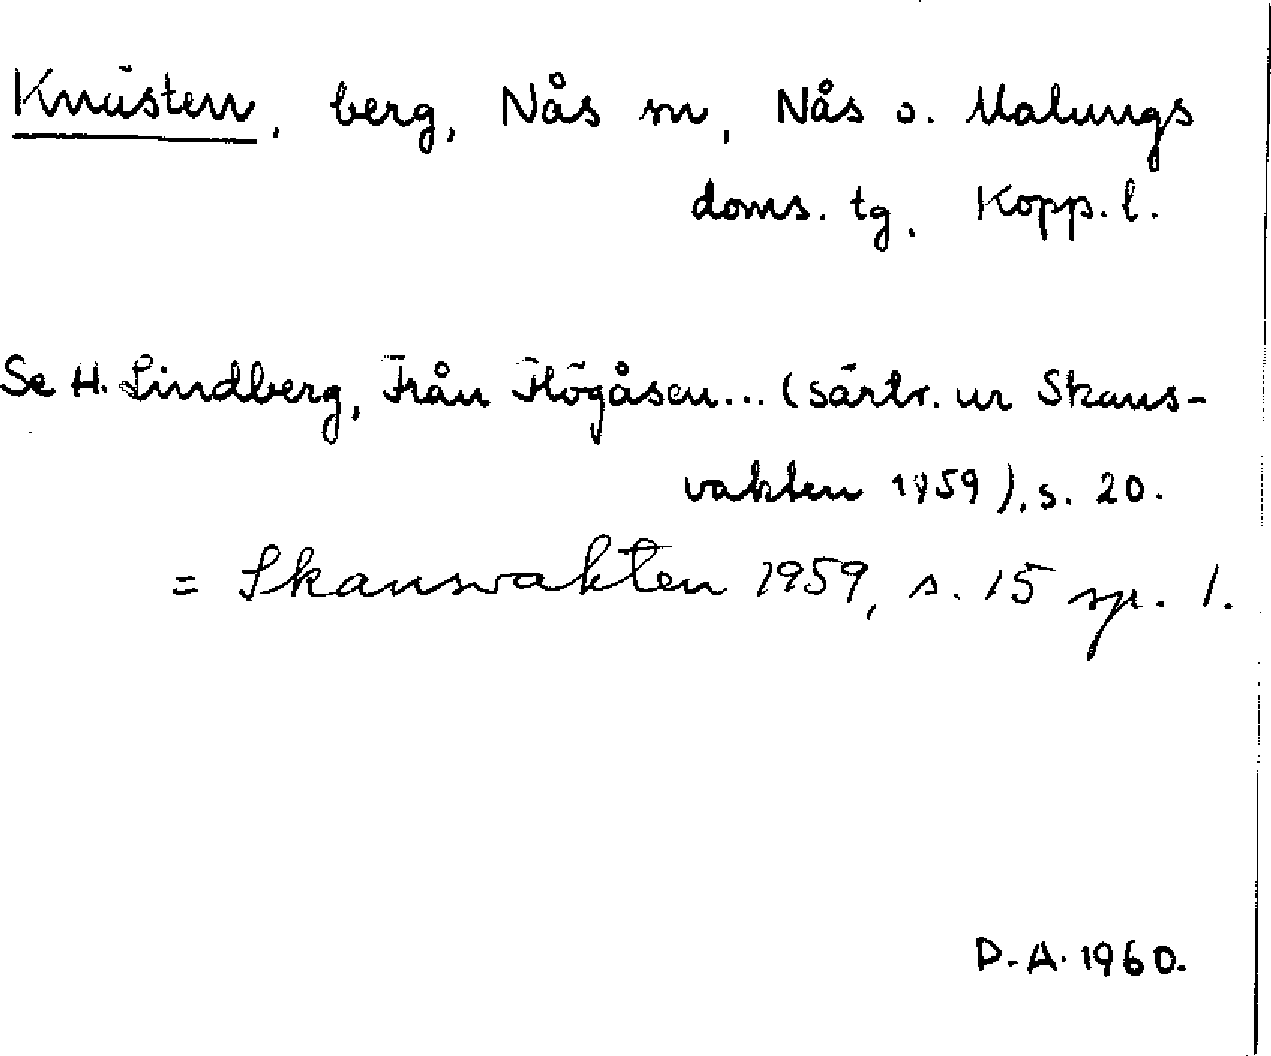 Knästen, berg, Nås sn, Nås o. Malungs
doms. tg, Kopp. l.
Se H. Lindberg, Från Högåsen... (särtr. ur Skans-
vakten 1959), s. 20.
= Skansvakten 1959, s. 15 sp. 1.
D.A. 1960.